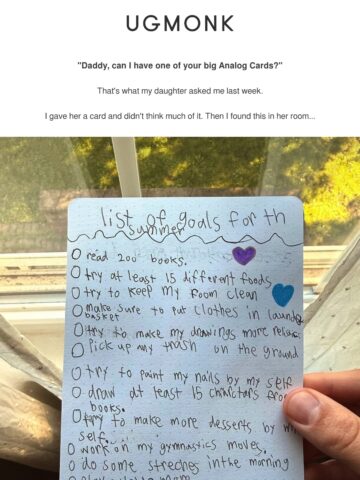 UGMONK
"Daddy, can I have one of your big Analog Cards?"
That's what my daughter asked me last week.
I gave her a card and didn't think much of it. Then I found this in her room...
list of goals for th
summer
read 200 books.
try at least 15 different foods
try to keep my room clean
make sure to put clothes in laundry
basket
try to make my drawings more
Pick up my trash on the ground
try to paint my nails by my self
draw at least 15 from
books.
try to make more desserts by
self.
work on my gymnastics moves.
do some streches in the morning